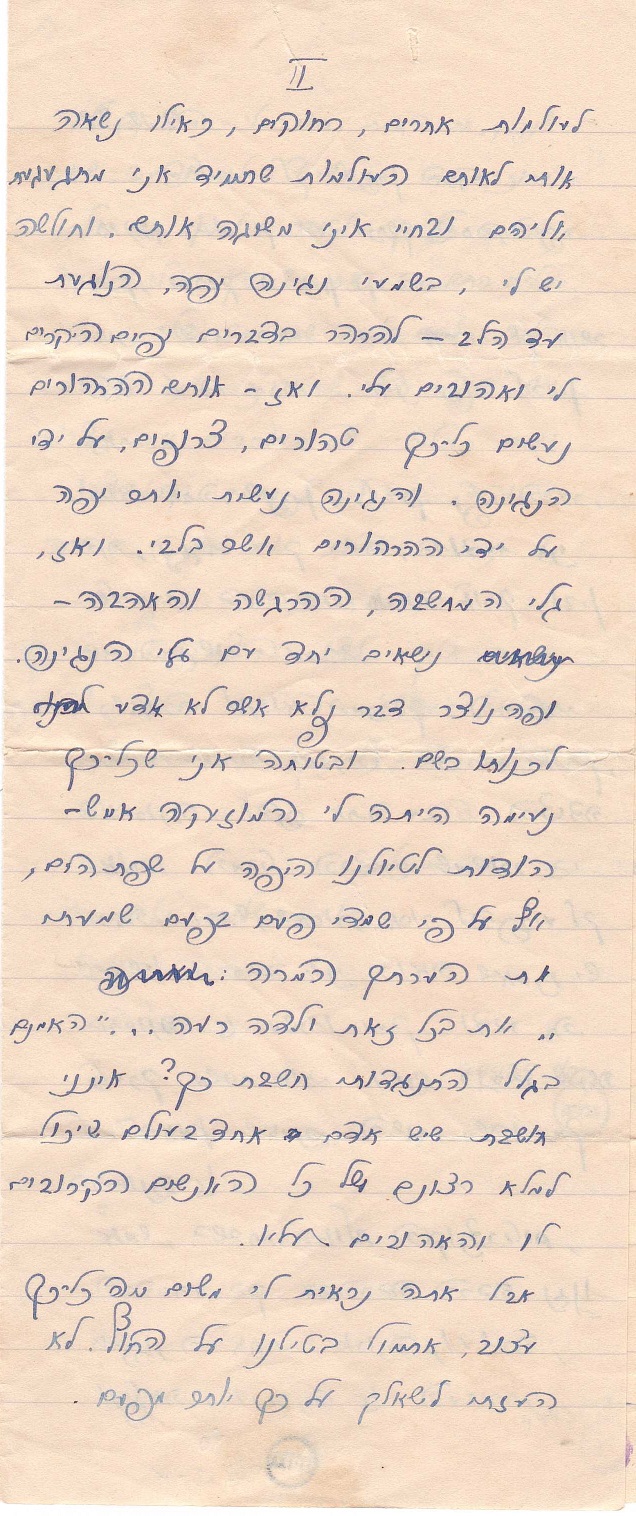 II
לעולמות אחרים, רחוקים, כאילו נשאה
אותי לאותם העולמות שתמיד אני מתגעגעת
אליהם ובחיי איני משיגה אותם. וחולשה
יש לי, בשמעי נגינה יפה, הנוגעת
עד הלב – להרהר בדברים יפים היקרים
לי ואהובים עלי. ואז – אותם ההרהורים
נעשים כל-כך טהורים, צרופים, על ידי
הנגינה. והנגינה נעשית יותר יפה
על ידי ההרהורים אשר בלבי. ואז,
גלי המחשבה, ההרגשה והאהבה –
נישאים יחד עם גלי הנגינה.
ופה נוצר דבר נפלא אשר לא אדע
לכנותו בשם. ובטוחה אני שכל-כך
נעימה היתה לי המוזיקה אמש –
הודות לטיולנו היפה על שפת הים,
אף על פי שמדי פעם בפעם שמעתי
את הערתך המרה:
„את בכל זאת ילדה רעה..." האמנם
בגלל התנגדותי חשבת כך? אינני
חושבת שיש אדם אחד בעולם שיכול
למלא רצונם של כל האנשים הקרובים
לו והאהובים עליו.
אבל אתה נראית לי משום מה כל-כך
עצוב, אתמול בטיילנו על החוף. לא
העזתי לשאלך על כך יותר מפעם.